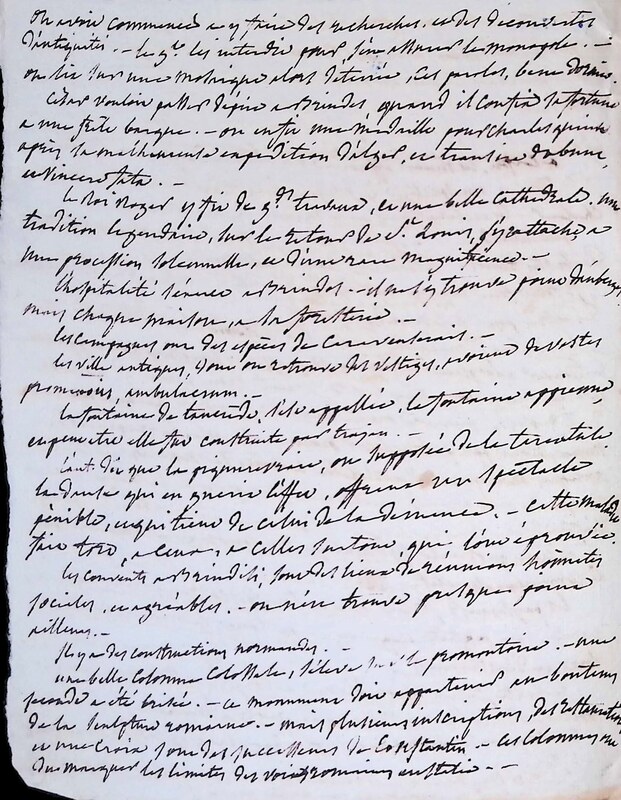 on avoit commencé a y faire des recherches, et des découvertes
d'antiquités. - le g.t les interdit pour s'en assurer le monopole. -
on lit sur une mosaique alors déterrée, ces paroles, bene dormio.
César vouloit passer d'ici a Brindes, quand il confia sa fortune
a une frêle barque. - on fit une médaille pour Charles quint
après la malheureuse expédition d'alger,
et vincere fata. -
le roi Roger y fit de g.ds travaux, et une belle cathédrale, une
tradition légendaire, sur le retour de St Louis, s'y rattache, a
une procession solennelle, et d'une rare magnificence. -
l'hospitalité s'exerce a Brindes. - il ne s'y trouve point d'auberges
mais chaque maison, a la foresteria. -
les campagnes ont des espèces de caravanserais. -
les ville antiques, dont on retrouve des vestiges, avoient de vastes
promenoirs, ambulacrum. -
la fontaine de tancrède, s'est appellée, la fontaine appienne,
et peut être elle fut construite par trajan. -
l'aut. dit que la piqure vraie, ou supposée de la tarentule
la danse qui en guérit l'effet, offrent un spectacle
pénible, et qui tient de celui de la démence. - cette maladie
fait tort, a ceux, a celles surtout, qui l'ont éprouvée.
les couvents a Brindisi, sont des lieux de réunions honnêtes
sociales, et agréables. - on n'en trouve presque point
ailleurs. -
il y a des constructions normandes. -
une belle colonne colossale, s'élève sur le promontoire. - une
seconde a été brisée. - ce monument doit appartenir au bon tems
de la sculpture romaine. - mais plusieurs inscriptions, des restaurations
et une croix sont des successeurs de Constantin - ces colonnes ont
du marquer les limites des voies romaines en Italie. -